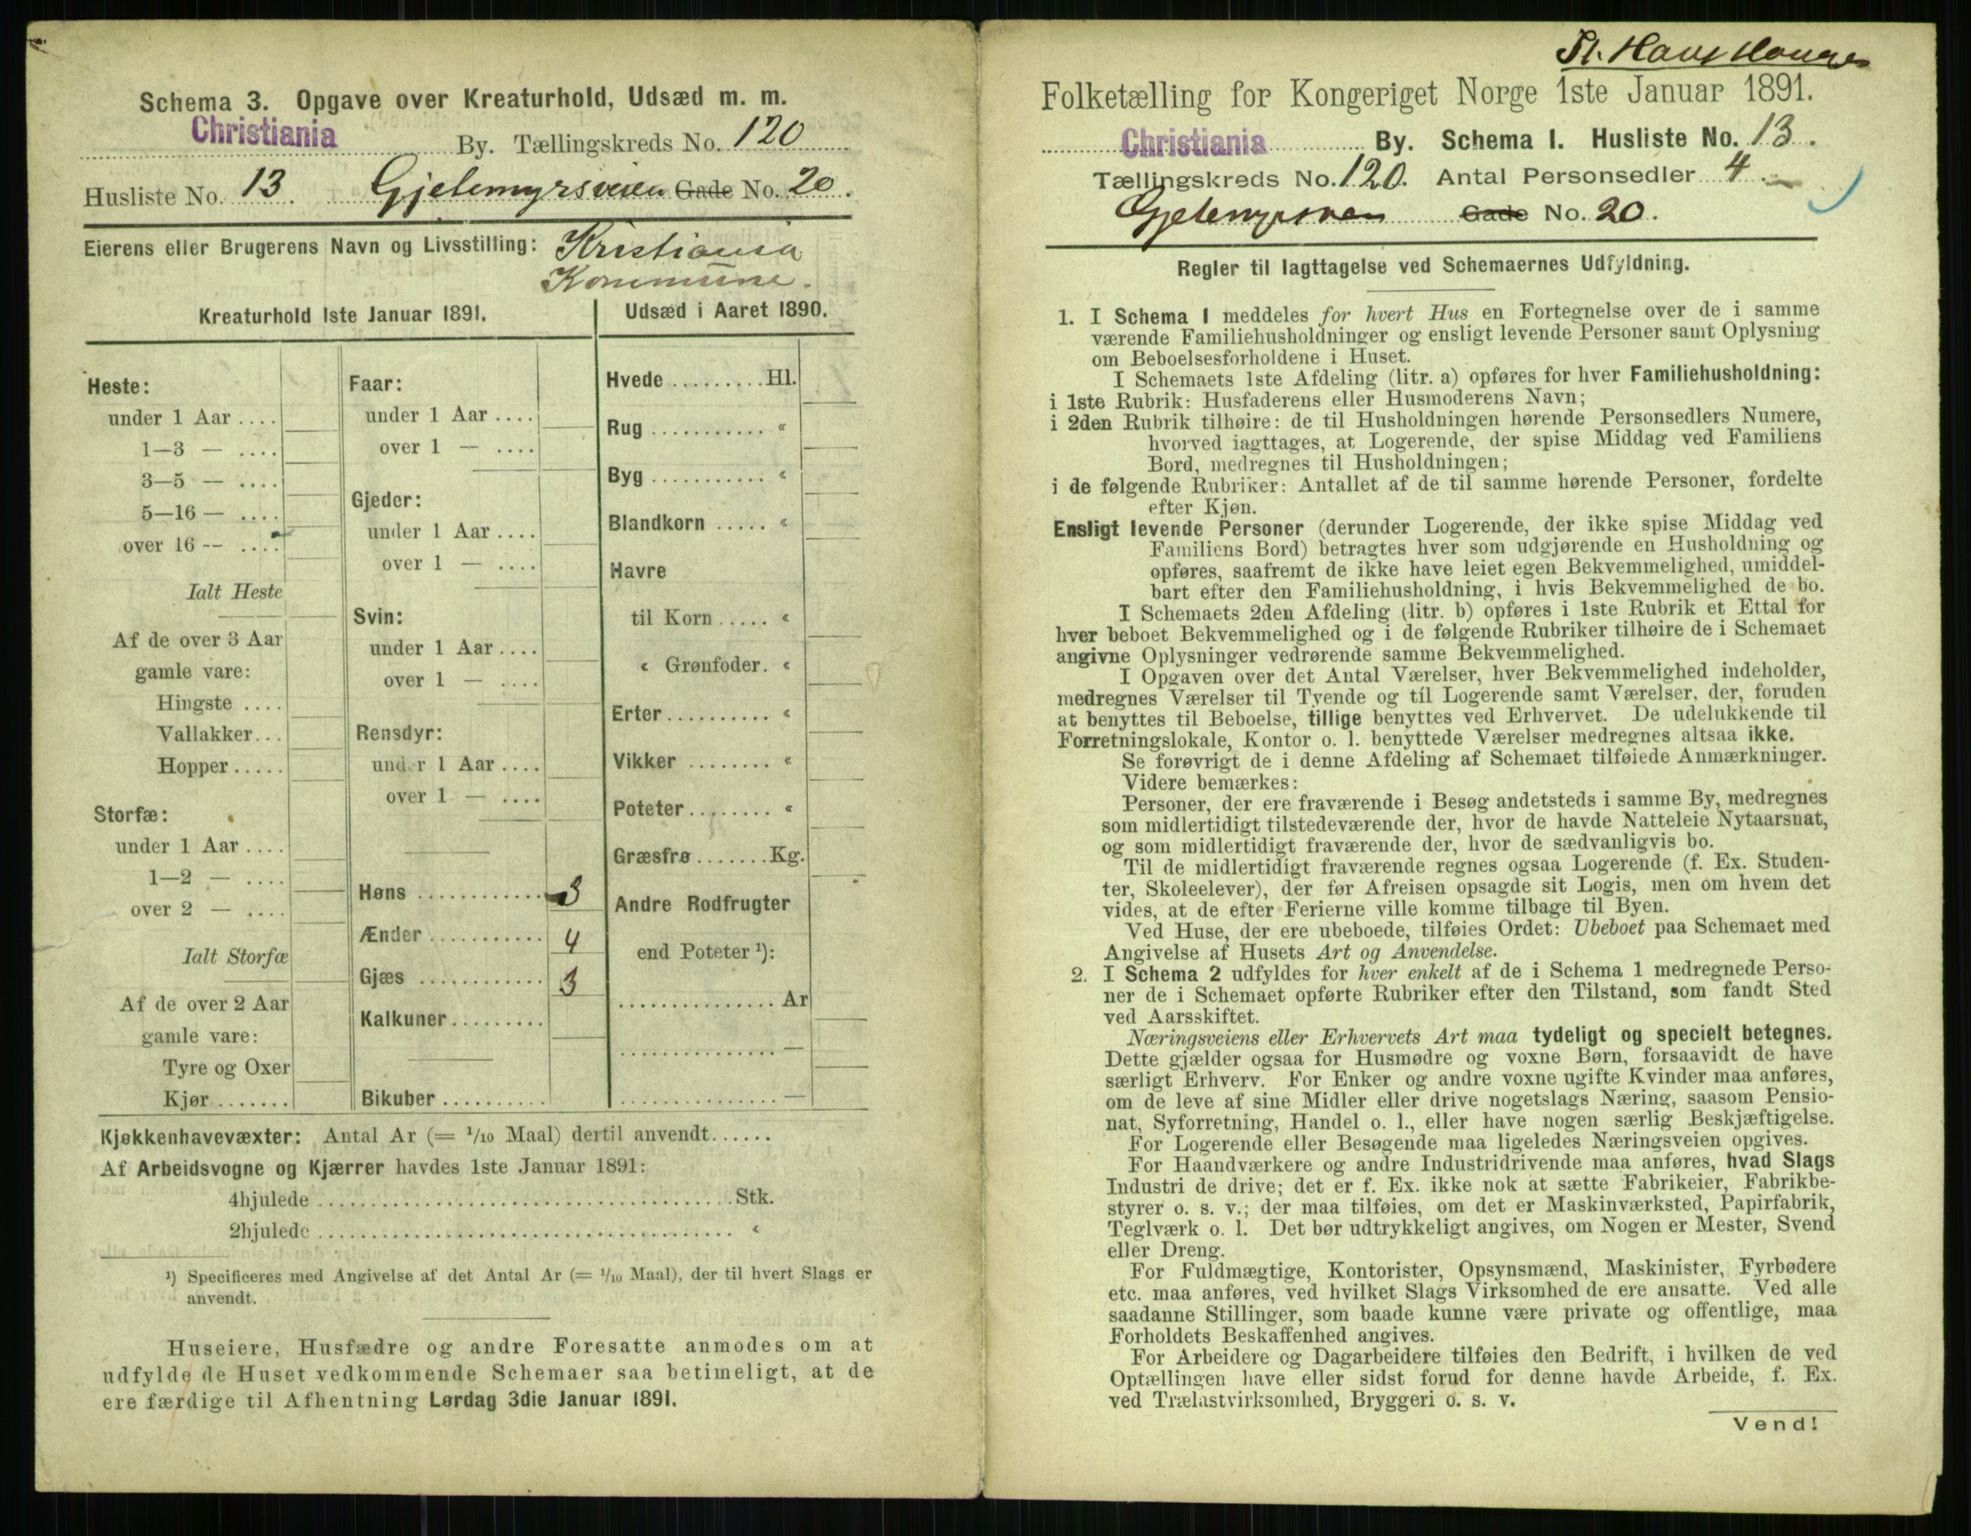 Schema 3. Opgave over Kreaturhold, Udsæd m. m.
Christiania By. Tællingskreds No. 120
Husliste No. 13. Gjetemyrsveien Gade No. 20.
Eierens eller Brugerens Navn og Livsstilling: Kristiania
Kommune.
Kreaturhold 1ste Januar 1891.
Heste:
under 1 Aar ....
1—3 — ....
3—5 — ....
5—16 — ....
over 16 — ....
Ialt Heste
Af de over 3 Aar
gamle vare:
Hingste ....
Vallakker...
Hopper.....
Storfæ:
under 1 Aar ....
1—2 — ....
over 2 — ....
Ialt Storfæ
Af de over 2 Aar
gamle vare:
Tyre og Oxer
Kjør.......
Faar:
under 1 Aar ....
over 1 — ....
Gjeder:
under 1 Aar ....
over 1 — ....
Svin:
under 1 Aar ....
over 1 — ....
Rensdyr:
under 1 Aar ....
over 1 — ....
Høns ............ 3
Ænder........... 4
Gjæs ............ 3
Kalkuner.........
Bikuber..........
Udsæd i Aaret 1890.
Hvede .........Hl.
Rug ........... «
Byg ........... «
Blandkorn ..... «
Havre
til Korn ..... «
« Grønfoder. «
Erter.......... «
Vikker ........ «
Poteter........ «
Græsfrø.......Kg.
Andre Rodfrugter
end Poteter ¹):
............... Ar
............... —
............... —
Kjøkkenhavevæxter: Antal Ar (= 1/10 Maal) dertil anvendt......
Af Arbeidsvogne og Kjærrer havdes 1ste Januar 1891:
4hjulede ........................................Stk.
2hjulede ........................................ «
¹) Specificeres med Angivelse af det Antal Ar (= 1/10 Maal), der til hvert Slags er
anvendt.
Huseiere, Husfædre og andre Foresatte anmodes om at
udfylde de Huset vedkommende Schemaer saa betimeligt, at de
ere færdige til Afhentning Lørdag 3die Januar 1891.
St. Hans Hauge
Folketælling for Kongeriget Norge 1ste Januar 1891.
Christiania By. Schema I. Husliste No. 13.
Tællingskreds No. 120. Antal Personsedler 4
Gjetemyrsveien Gade No. 20.
Regler til Iagttagelse ved Schemaernes Udfyldning.
1. I Schema I meddeles for hvert Hus en Fortegnelse over de i samme
værende Familiehusholdninger og ensligt levende Personer samt Oplysning
om Beboelsesforholdene i Huset.
I Schemaets 1ste Afdeling (litr. a) opføres for hver Familiehusholdning:
i 1ste Rubrik: Husfaderens eller Husmoderens Navn;
i 2den Rubrik tilhøire: de til Husholdningen hørende Personsedlers Numere,
hvorved iagttages, at Logerende, der spise Middag ved Familiens
Bord, medregnes til Husholdningen;
i de følgende Rubriker: Antallet af de til samme hørende Personer, fordelte
efter Kjøn.
Ensligt levende Personer (derunder Logerende, der ikke spise Middag ved
Familiens Bord) betragtes hver som udgjørende en Husholdning og
opføres, saafremt de ikke have leiet egen Bekvemmelighed, umiddel-
bart efter den Familiehusholdning, i hvis Bekvemmelighed de bo.
I Schemaets 2den Afdeling (litr. b) opføres i 1ste Rubrik et Ettal for
hver beboet Bekvemmelighed og i de følgende Rubriker tilhøire de i Schemaet
angivne Oplysninger vedrørende samme Bekvemmelighed.
I Opgaven over det Antal Værelser, hver Bekvemmelighed indeholder,
medregnes Værelser til Tyende og til Logerende samt Værelser, der, foruden
at benyttes til Beboelse, tillige benyttes ved Erhvervet. De udelukkende til
Forretningslokale, Kontor o. l. benyttede Værelser medregnes altsaa ikke.
Se forøvrigt de i denne Afdeling af Schemaet tilføiede Anmærkninger.
Videre bemærkes:
Personer, der ere fraværende i Besøg andetsteds i samme By, medregnes
som midlertidigt tilstedeværende der, hvor de havde Natteleie Nytaarsnat,
og som midlertidigt fraværende der, hvor de sædvanligvis bo.
Til de midlertidigt fraværende regnes ogsaa Logerende (f. Ex. Studen-
ter, Skoleelever), der før Afreisen opsagde sit Logis, men om hvem det
vides, at de efter Ferierne ville komme tilbage til Byen.
Ved Huse, der ere ubeboede, tilføies Ordet: Ubeboet paa Schemaet med
Angivelse af Husets Art og Anvendelse.
2. I Schema 2 udfyldes for hver enkelt af de i Schema 1 medregnede Perso-
ner de i Schemaet opførte Rubriker efter den Tilstand, som fandt Sted
ved Aarsskiftet.
Næringsveiens eller Erhvervets Art maa tydeligt og specielt betegnes.
Dette gjælder ogsaa for Husmødre og voxne Børn, forsaavidt de have
særligt Erhverv. For Enker og andre voxne ugifte Kvinder maa anføres,
om de leve af sine Midler eller drive nogetslags Næring, saasom Pensio-
nat, Syforretning, Handel o. l., eller have nogen særlig Beskjæftigelse.
For Logerende eller Besøgende maa ligeledes Næringsveien opgives.
For Haandværkere og andre Industridrivende maa anføres, hvad Slags
Industri de drive; det er f. Ex. ikke nok at sætte Fabrikeier, Fabrikbe-
styrer o. s. v.; der maa tilføies, om det er Maskinværksted, Papirfabrik,
Teglværk o. l. Det bør udtrykkeligt angives, om Nogen er Mester, Svend
eller Dreng.
For Fuldmægtige, Kontorister, Opsynsmænd, Maskinister, Fyrbødere
etc. maa anføres, ved hvilket Slags Virksomhed de ere ansatte. Ved alle
saadanne Stillinger, som baade kunne være private og offentlige, maa
Forholdets Beskaffenhed angives.
For Arbeidere og Dagarbeidere tilføies den Bedrift, i hvilken de ved
Optællingen have eller sidst forud for denne havde Arbeide, f. Ex.
ved Trælastvirksomhed, Bryggeri o. s. v.
Vend!